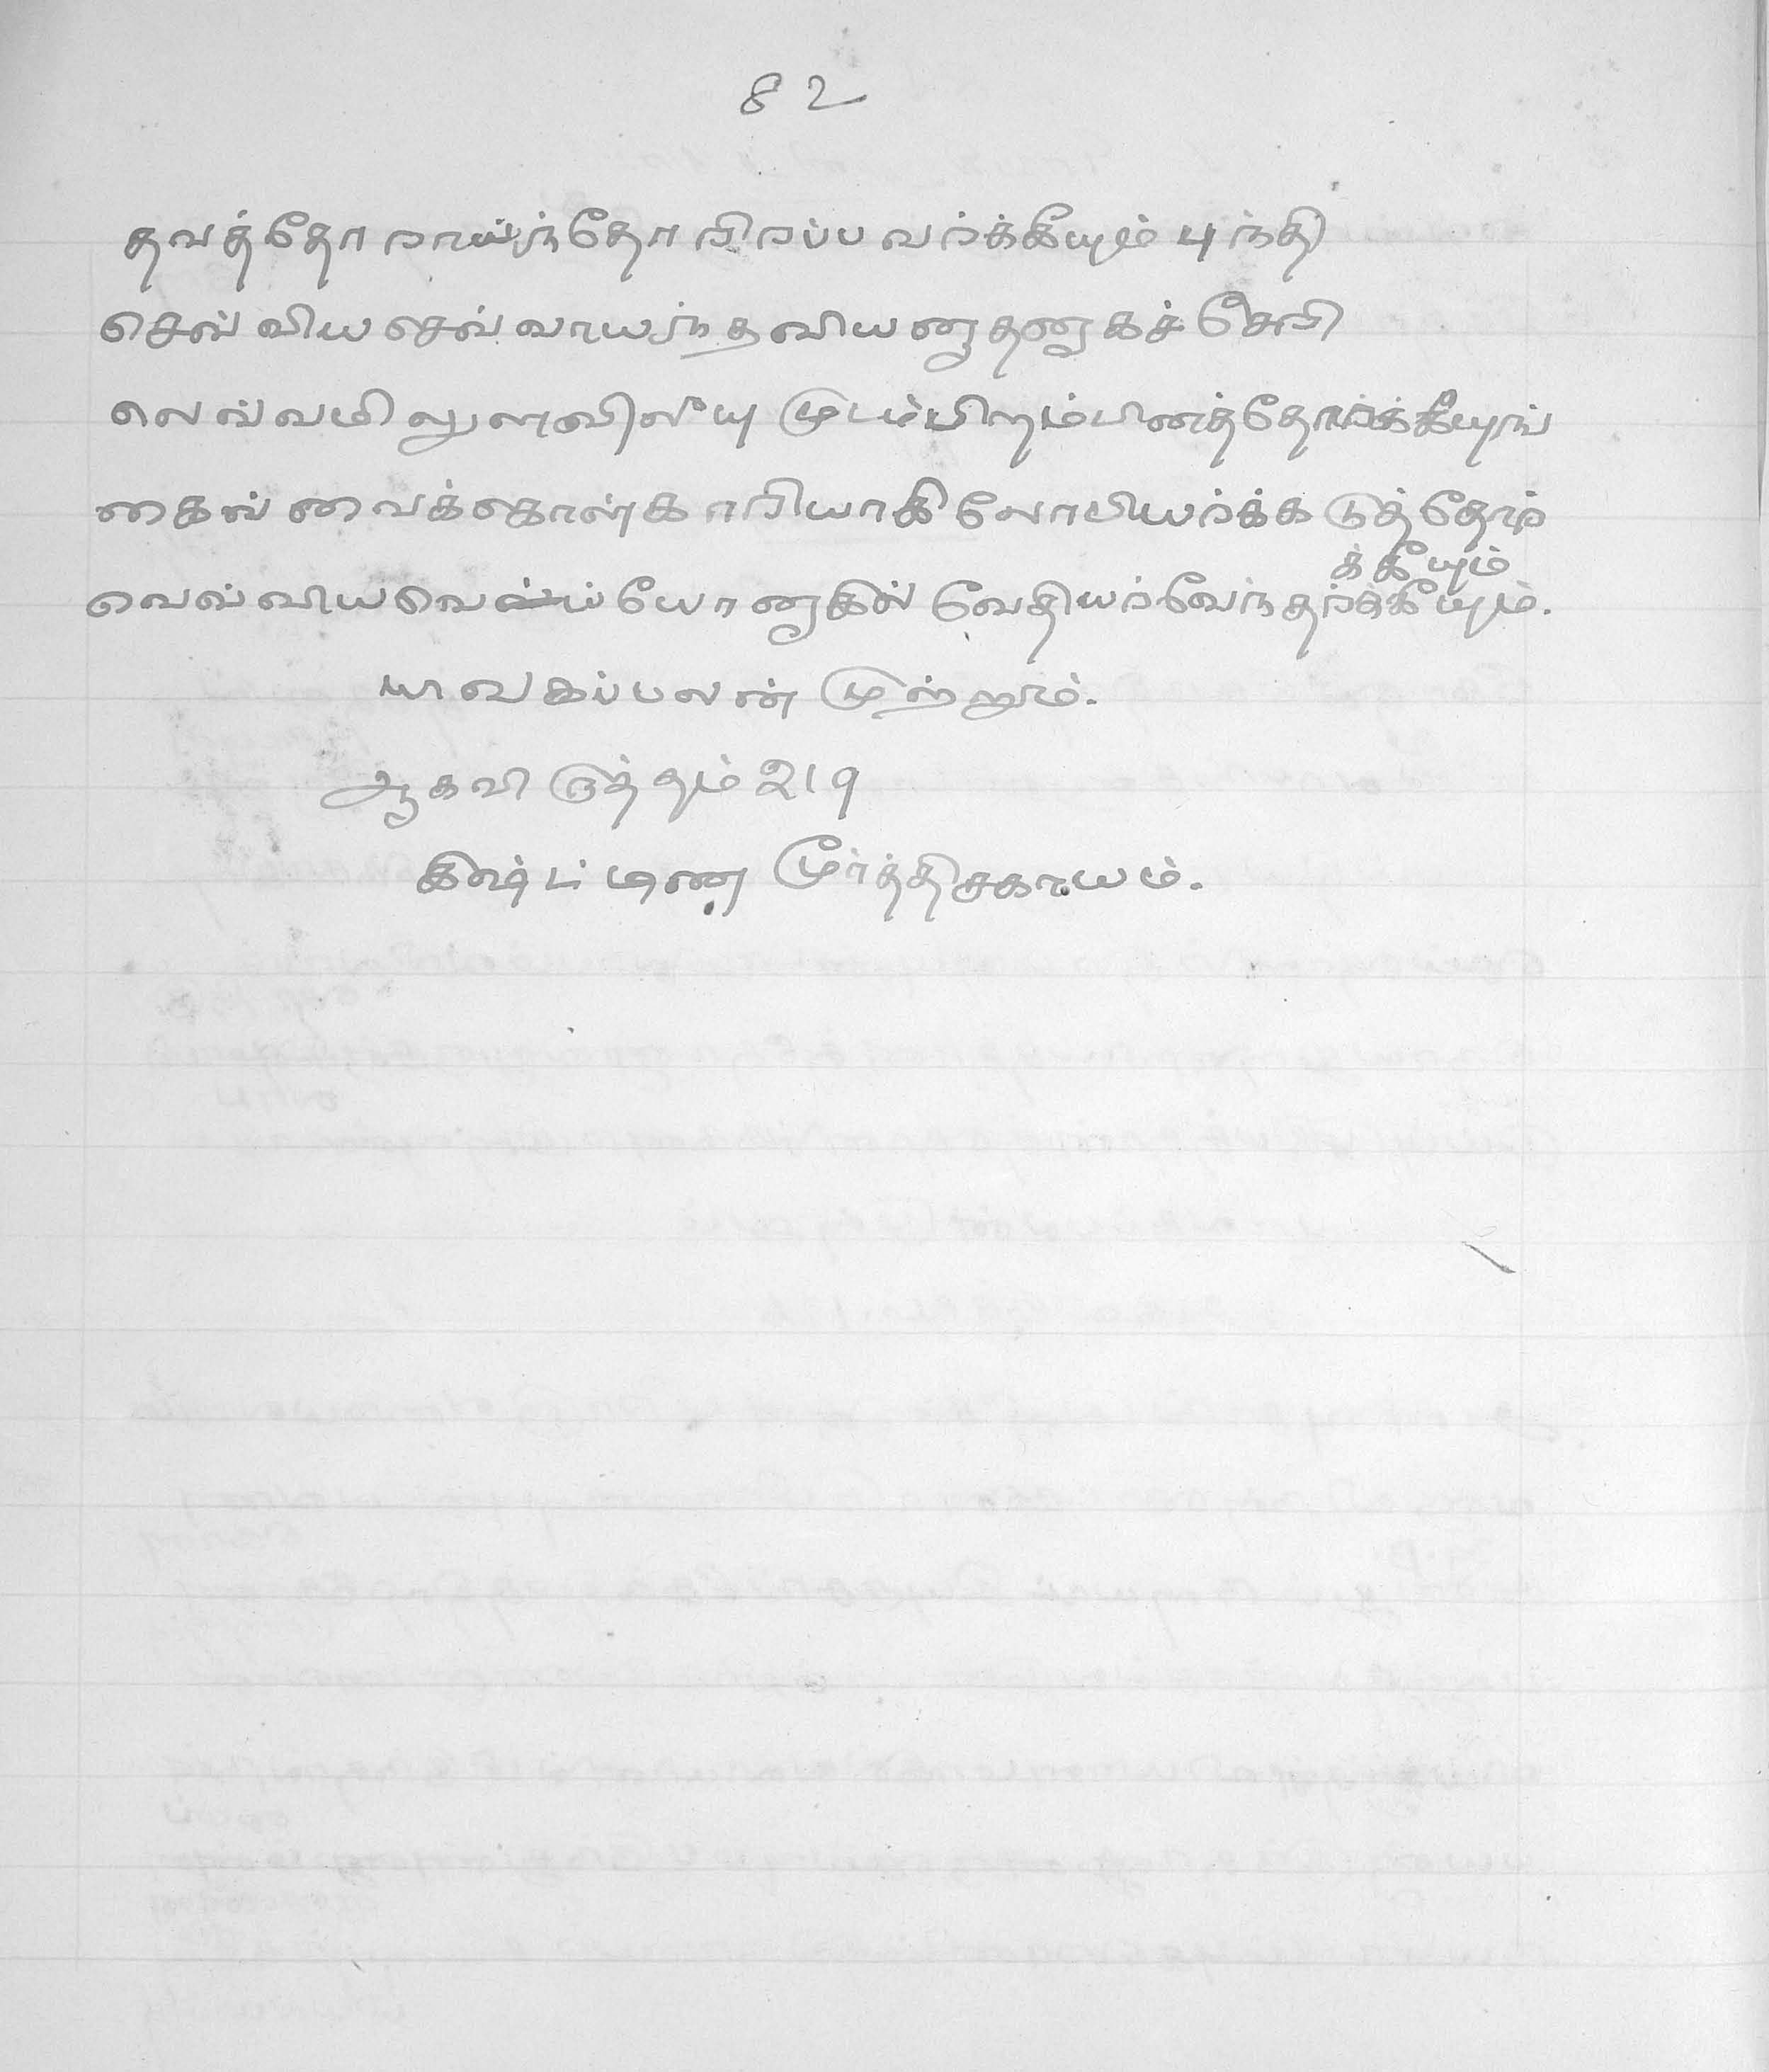 82
தவத்தோ ராய்ந்தோ ரிரப்ப வர்க்கீயும் புந்தி
செவ் விய செவ் வாயுந் தவியனுதனுகச் சேரி
லெவ்வமி லுளவிலீயு முடம்பிறம்பினத்தோர்க்கீயுங்
கைவ் வைக்கொள்க ாரியாகி லோவியர்க்க டுத்தோர்
க்கீயும்
வெவ்விய வெய் யோனுகில் வேதியர்வேந்தர்க்கீயும்.
பாவகப்பலன் முற்றும்.
ஆகவி ருத்தம் 219
இஷ்ட மூர்த்திசகாயம்.